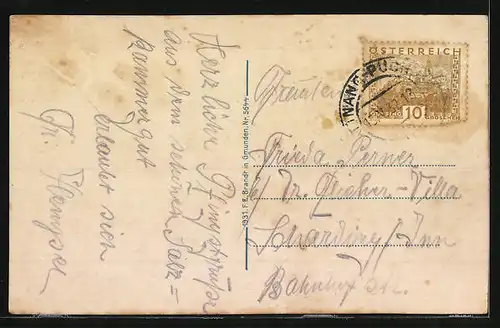 Herzliche Pfingstgrüße
aus dem schönen Salz=
kammergut
erlaubt sich
Fr.
1931 F. E. Brandt in Gmunden. Nr. 5644
ÖSTERREICH
10
GROSCHEN
Fräulein
Frieda Perner
Dr. Fleischer-Villa
Schärding/Inn
Bahnhof